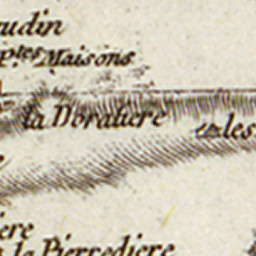 udin
P.tes Maisons
la Doraliere
les
iere
la Pierrediere